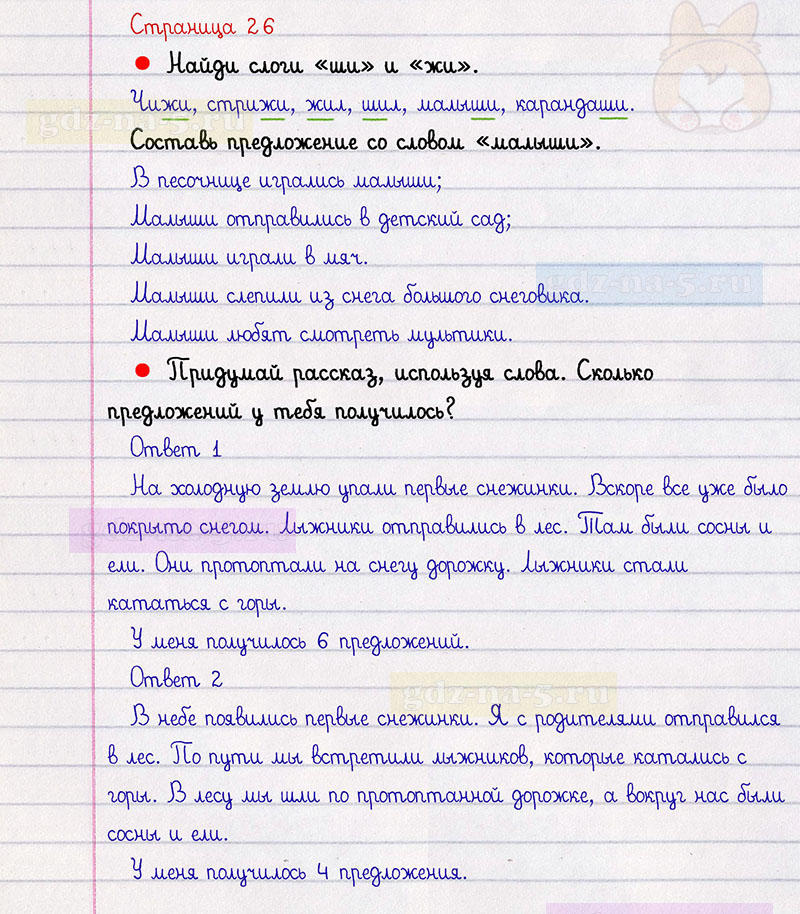 Страница 26
Найди слоги «ши» и «жи».
Чижи, стрижи, жил, шил, малыши, карандаши.
gdz-na-5.ru
Составь предложение со словом «малыши».
В песочнице игрались малыши;
Малыши отправились в детский сад;
Малыши играли в мяч.
gdz-na-5.ru
Малыши слепили из снега большого снеговика.
Малыши любят смотреть мультики.
Придумай рассказ, используя слова. Сколько
предложений у тебя получилось?
Ответ 1
На холодную землю упали первые снежинки. Вскоре все уже было
покрыто снегом. Лыжники отправились в лес. Там были сосны и
ели. Они протоптали на снегу дорожку. Лыжники стали
кататься с горы.
У меня получилось 6 предложений.
Ответ 2
gdz-na-5.ru
В небе появились первые снежинки. Я с родителями отправился
в лес. По пути мы встретили лыжников, которые катались с
горы. В лесу мы шли по протоптанной дорожке, а вокруг нас были
сосны и ели.
У меня получилось 4 предложения.